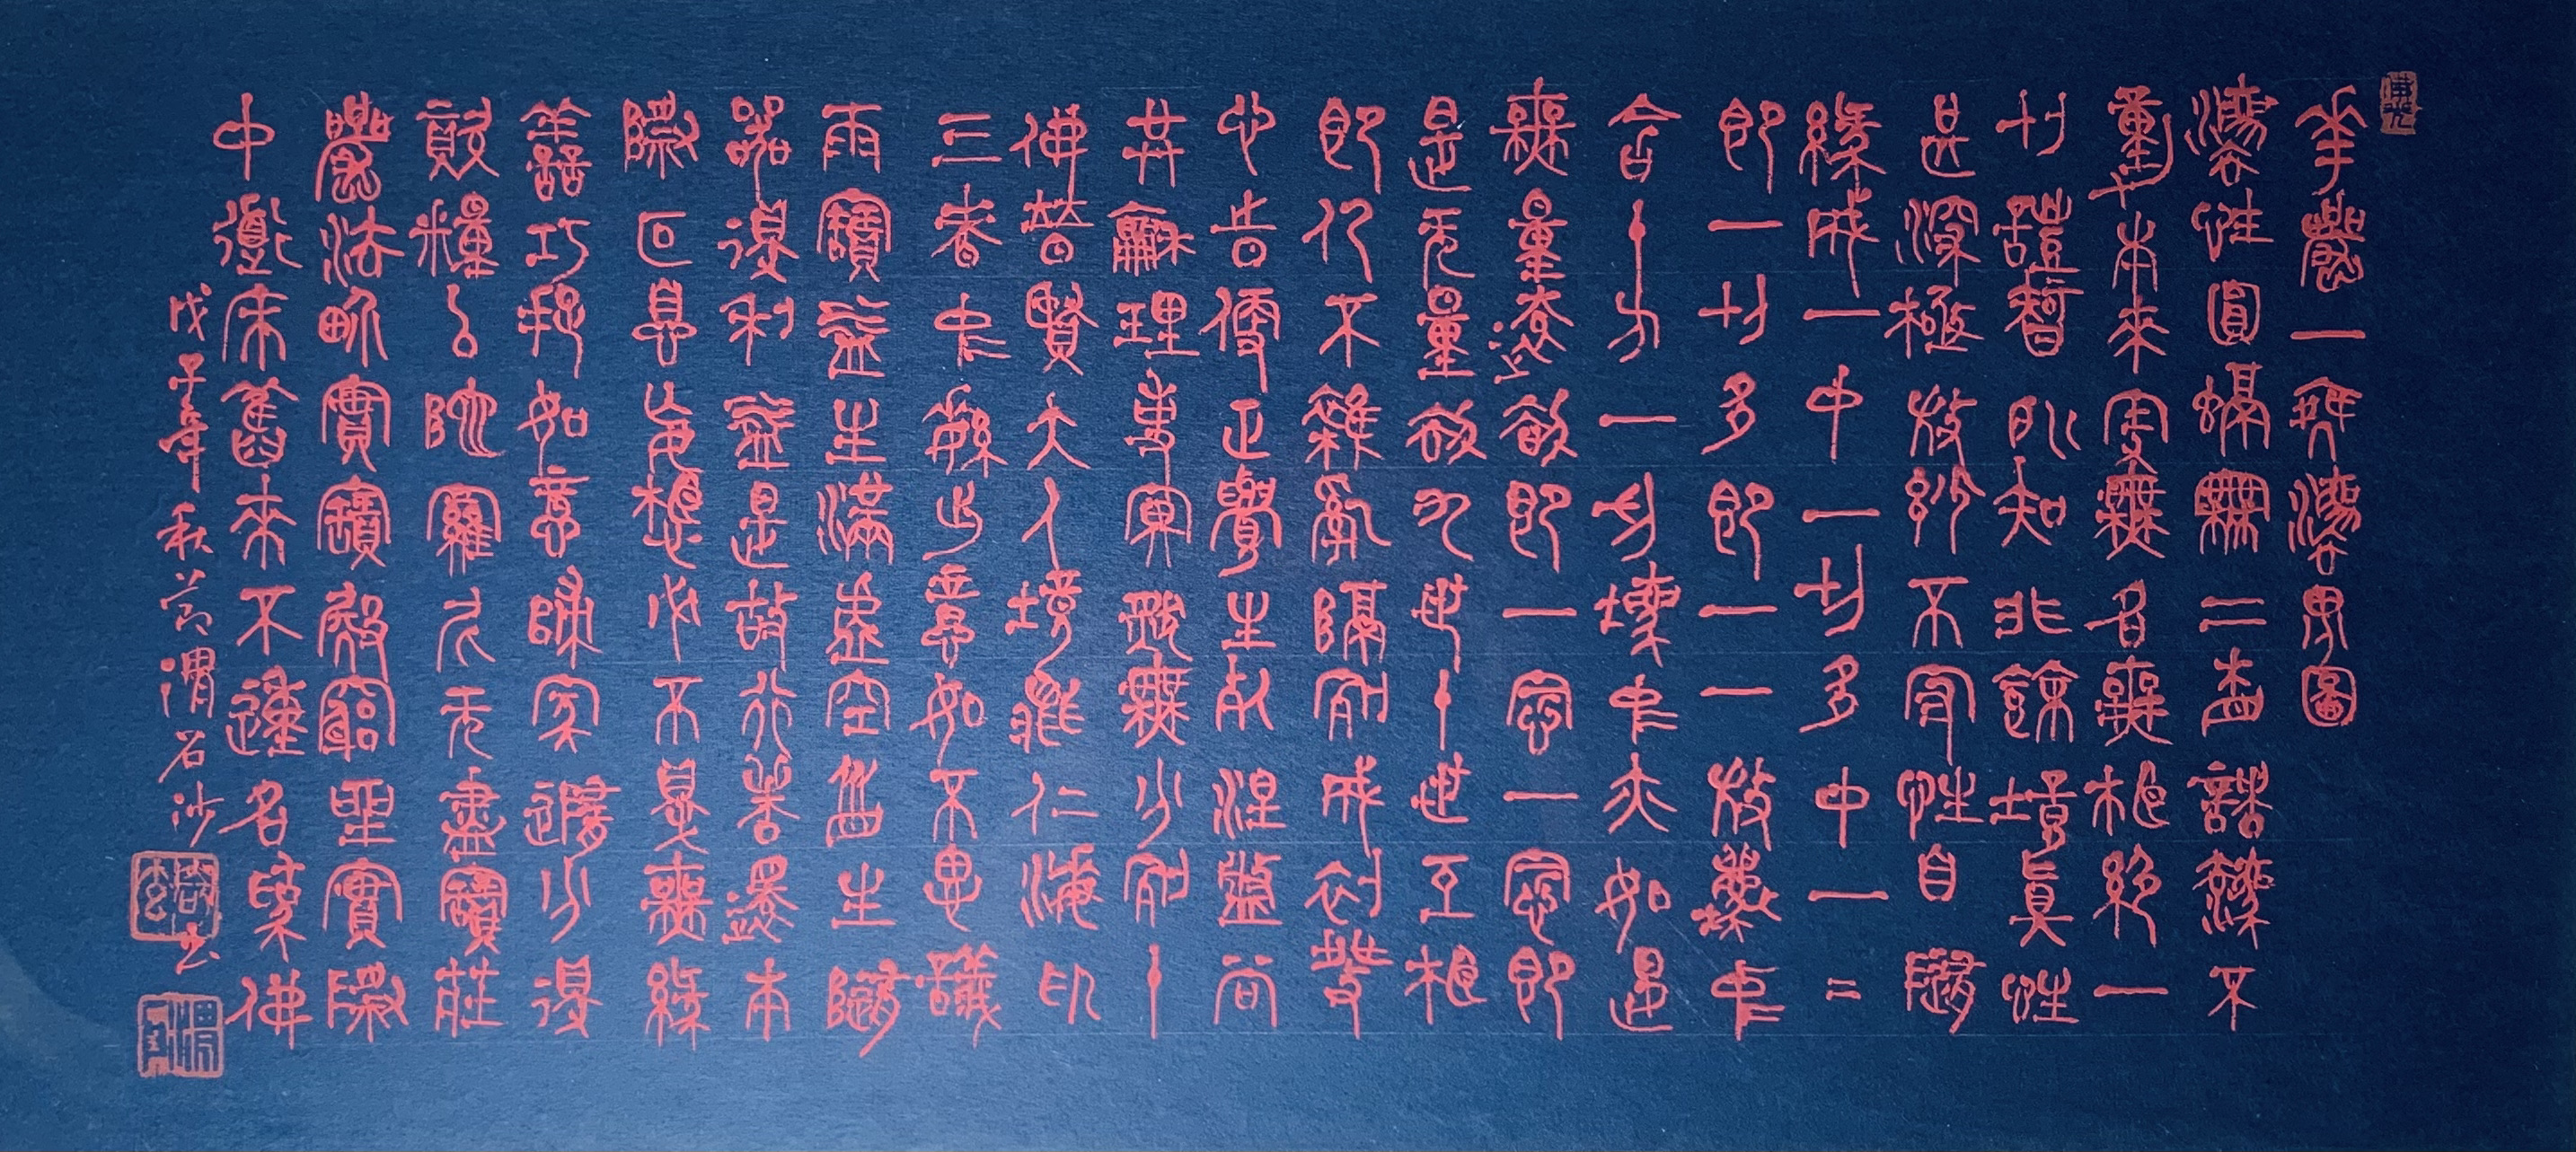 華嚴一乘法界圖
法性圓融無二相諸法不
動本來寂無名無相絶一
切證智所知非餘境眞性
甚深極微妙不守自性隨
緣成一中一切多中一=
卽一切多卽一一微塵中
含十方一切塵中亦如是
無量遠劫卽一念一念卽
是无量劫九世十世互相
卽仍不雜亂隔別成初發
心時便正覺生死涅槃尚
共龢理事冥然無分別十
佛普賢大人境能仁海印
三昧中繁出意如不思議
雨寶益生滿虛空衆生隨
器得利益是故行者還本
際叵息妄想必不得無緣
善巧捉如意歸家隨分得
資糧以陀羅尼无盡寶莊
嚴法界實寶殿窮坐實際
中道床舊來不動名爲佛
戊子年秋渭石沙書